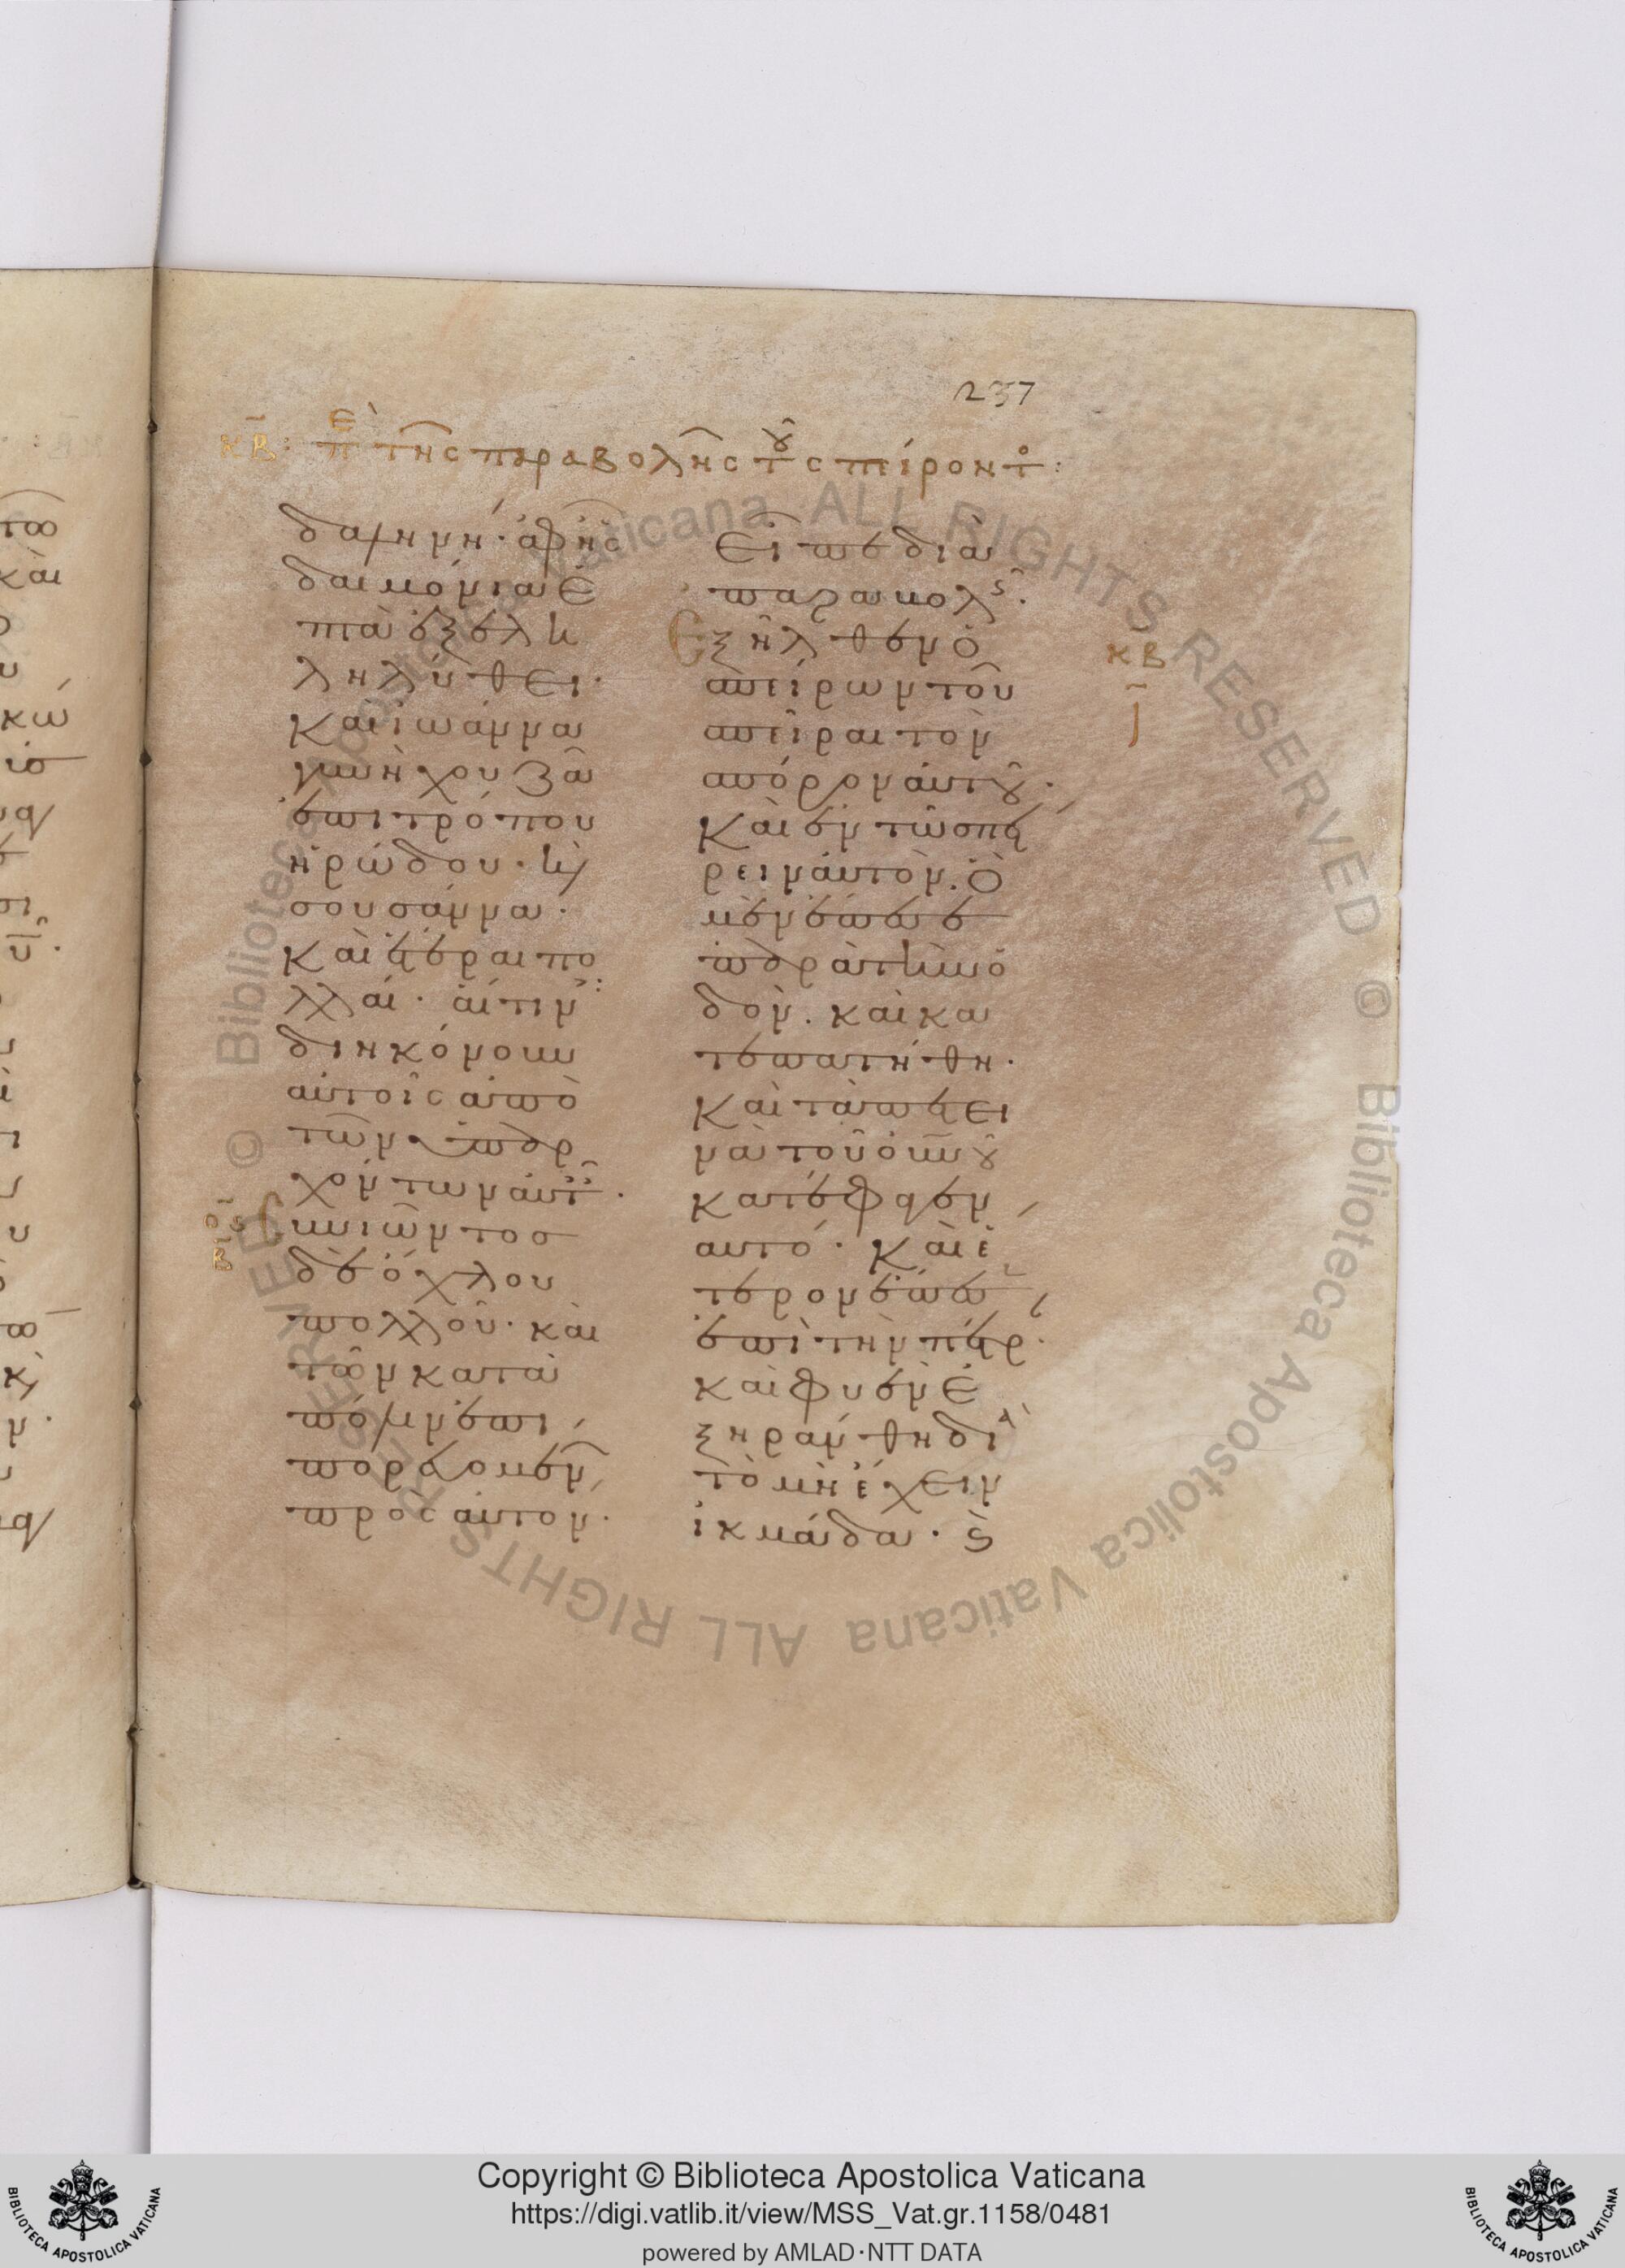 237
κβ: επὶ τῆς παραβολῆς τοῦ σπίροντο:
δαληνὴ· ἀφ' ἧς
δαιμόνια ἑ
πτὰ ἐξελη
ληλύθει·
Καὶ ἰωάννα
γυνὴ χουζᾶ
ἐπιτρόπου
ἡρώδου· κὶ
σουσάννα·
Καὶ ἕτεραι πο
λλαί· αἵτιν(ες):
διηκόνουν
αὐτοῖς ἀπὸ
τῶν ὑπαρ
χόντων αὐτ(αῖς)·
ος
β
Συνιῶντοσ
δὲ ὄχλου
πολλοῦ· καὶ
τῶν κατὰ
πόλιν ἐπι
πορευομέν(ων)
πρὸς αὐτόν·
Εἶπε διὰ
παραβολῆς·
κβ
ι
Ἐξῆλθεν ὁ
σπείρων τοῦ
σπεῖραι τὸν
σπόρον αὐτοῦ·
Καὶ ἐν τῶ σπεί
ρειν αὐτὸν· Ὃ
μὲν ἔπεσε
παρὰ τὴν ὁ
δὸν· καὶ κα
τεπατήθη·
Καὶ τὰ πετει
νὰ τοῦ οὐ(ρα)νοῦ
κατέφαγεν
αυτό· Καὶ ἕ
τερον ἔπεσεν
ἐπὶ τὴν πέτρ(αν)·
καὶ φυὲν ἐ
ξηράνθη διὰ
τὸ μὴ ἔχειν
ἰκμάδα· ϛ
Copyright © Biblioteca Apostolica Vaticana
https://digi.vatlib.it/view/MSS_Vat.gr.1158/0481
powered by AMLAD·NTT DATA
BIBLIOTECA APOSTOLICA VATICANA
BIBLIOTECA APOSTOLICA VATICANA
© Biblioteca Apostolica Vaticana ALL RIGHTS RESERVED © Biblioteca Apostolica Vaticana ALL RIGHTS RESERVED